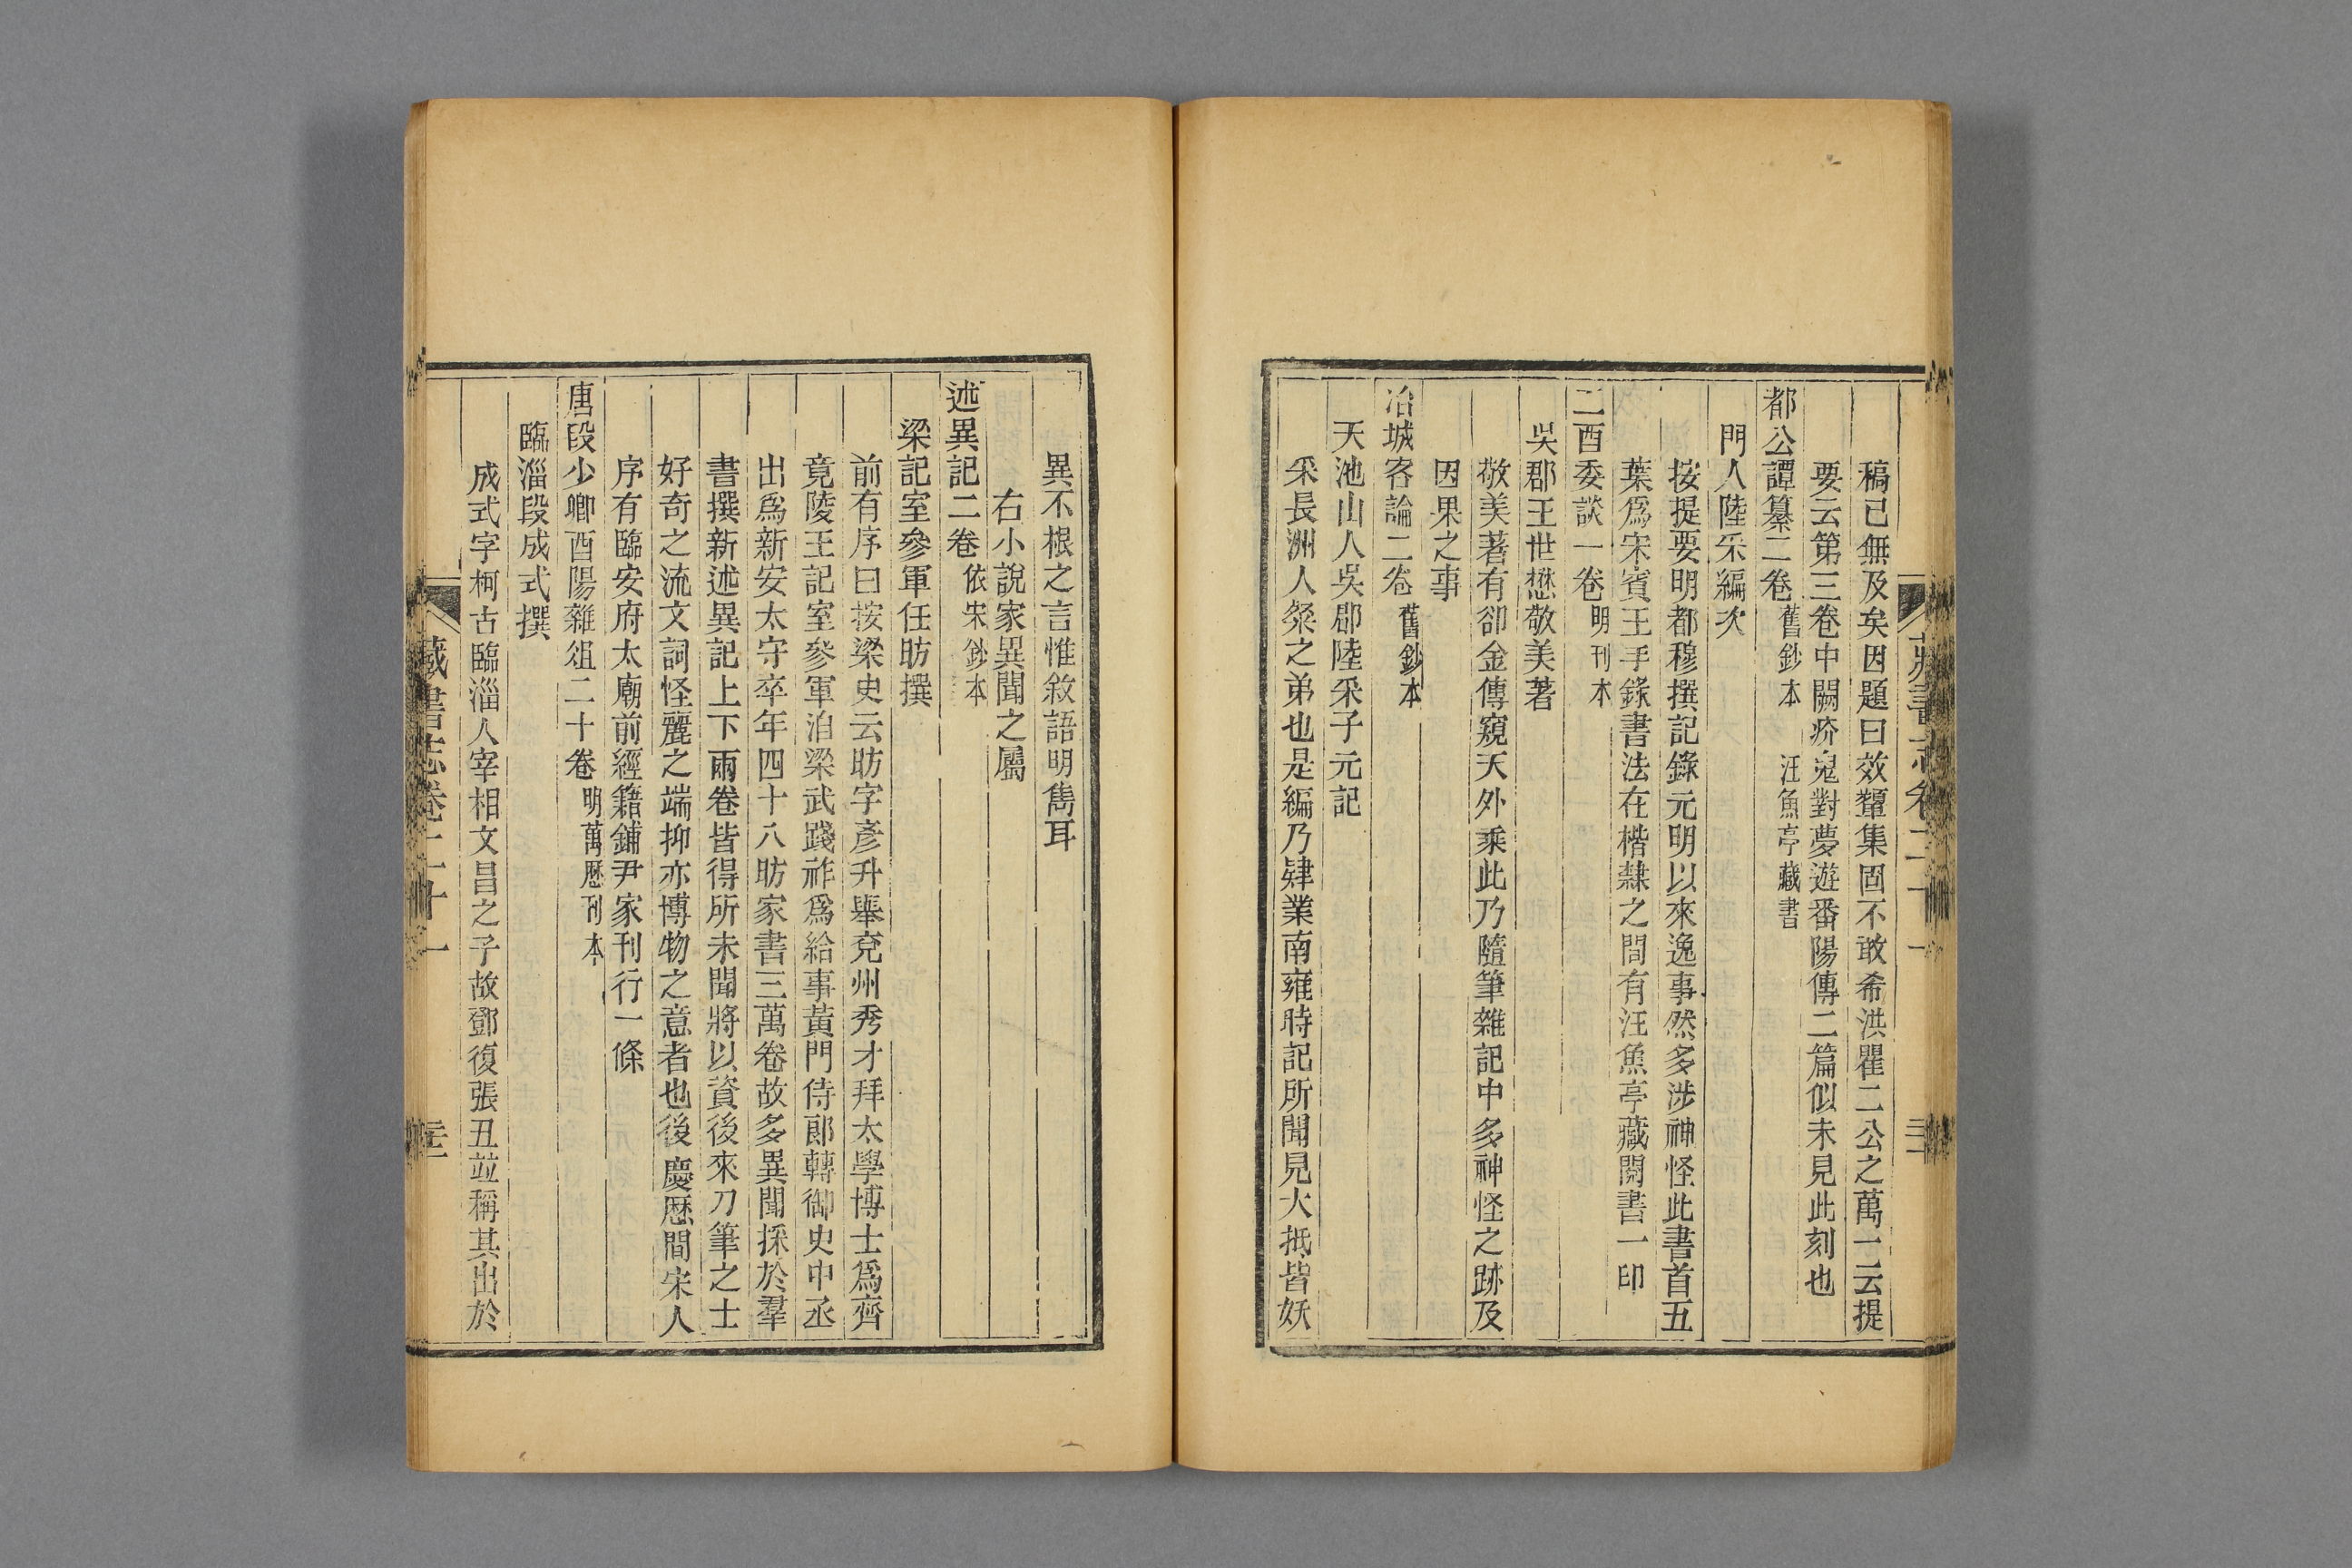 稿已無及矣因題曰效顰集固不敢希洪瞿二公之萬一云提
要云第三卷中闕疥鬼對夢遊番陽傳二篇似未見此刻也
都公譚纂二卷 舊鈔本 汪魚亭藏書
門人陸采編次
按提要明都穆撰記錄元明以來逸事然多涉神怪此書首五
葉爲宋賓王手錄書法在楷隸之間有汪魚亭藏閱書一印
二酉委談一卷 明刊本
吳郡王世懋敬美著
敬美著有卻金傳窺天外乘此乃隨筆雜記中多神怪之跡及
因果之事
冶城客論二卷 舊鈔本
天池山人吳郡陸采子元記
采長洲人粲之弟也是編乃肄業南雍時記所聞見大抵皆妖
異不根之言惟敘語明雋耳
右小說家異聞之屬
述異記二卷 依宋鈔本
梁記室參軍任昉撰
前有序曰按梁史云昉字彥升舉兗州秀才拜太學博士爲齊
竟陵王記室參軍洎梁武踐祚爲給事黃門侍郎轉御史中丞
出爲新安太守卒年四十八昉家書三萬卷故多異聞採於羣
書撰新述異記上下兩卷皆得所未聞將以資後來刀筆之士
好奇之流文詞怪麗之端抑亦博物之意者也後慶歷間宋人
序有臨安府太廟前經籍鋪尹家刊行一條
唐段少卿酉陽雜俎二十卷 明萬歷刊本
臨淄段成式撰
成式字柯古臨淄人宰相文昌之子故鄧復張丑竝稱其出於
藏書志卷二十一